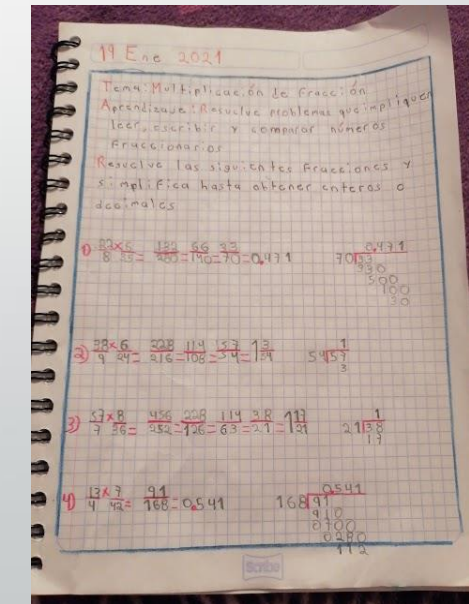 19 Ene 2021
Tema: Multiplicación de Fracción
Aprendizaje: Resuelve problemas que impliquen
leer, escribir y comparar números
Fraccionarios
Resuelve las siguientes Fracciones y
simplifica hasta obtener enteros o
decimales
1) 22/8 × 6/35 = 132/280 = 66/140 = 33/70 = 0.471
0.471
70 33
330
500
100
30
2) 38/9 × 6/24 = 228/216 = 114/108 = 57/54 = 1 3/54
1
54 57
3
3) 57/7 × 8/36 = 456/252 = 228/126 = 114/63 = 38/21 = 1 17/21
1
21 38
17
4) 13/4 × 7/42 = 91/168 = 0.541
0.541
168 91
910
0700
0280
112
Scribe